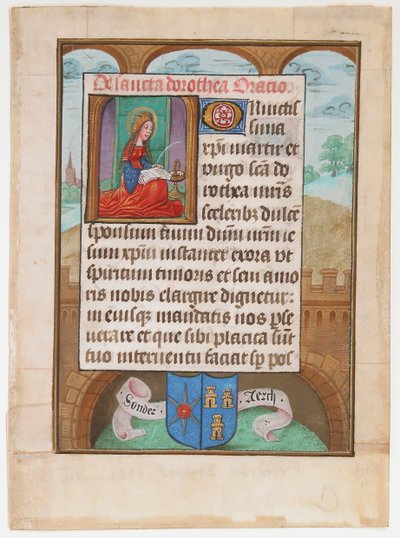 De sancta dorothea Oracio.
O Invictis
sima
xpi martir et
virgo scā do
rothea nr̃is
sceleribꝫ dulcē
sponsum tuum dn̄m nr̄m ie
sum xpūm instanter exora vt
spiritum timoris et seu amo
ris nobis elargire dignetur:
in eiusque mandatis nos ꝑse
verare et que sibi placita sūt
tuo interventu faciat sp̄ pos
Sonder Aerch